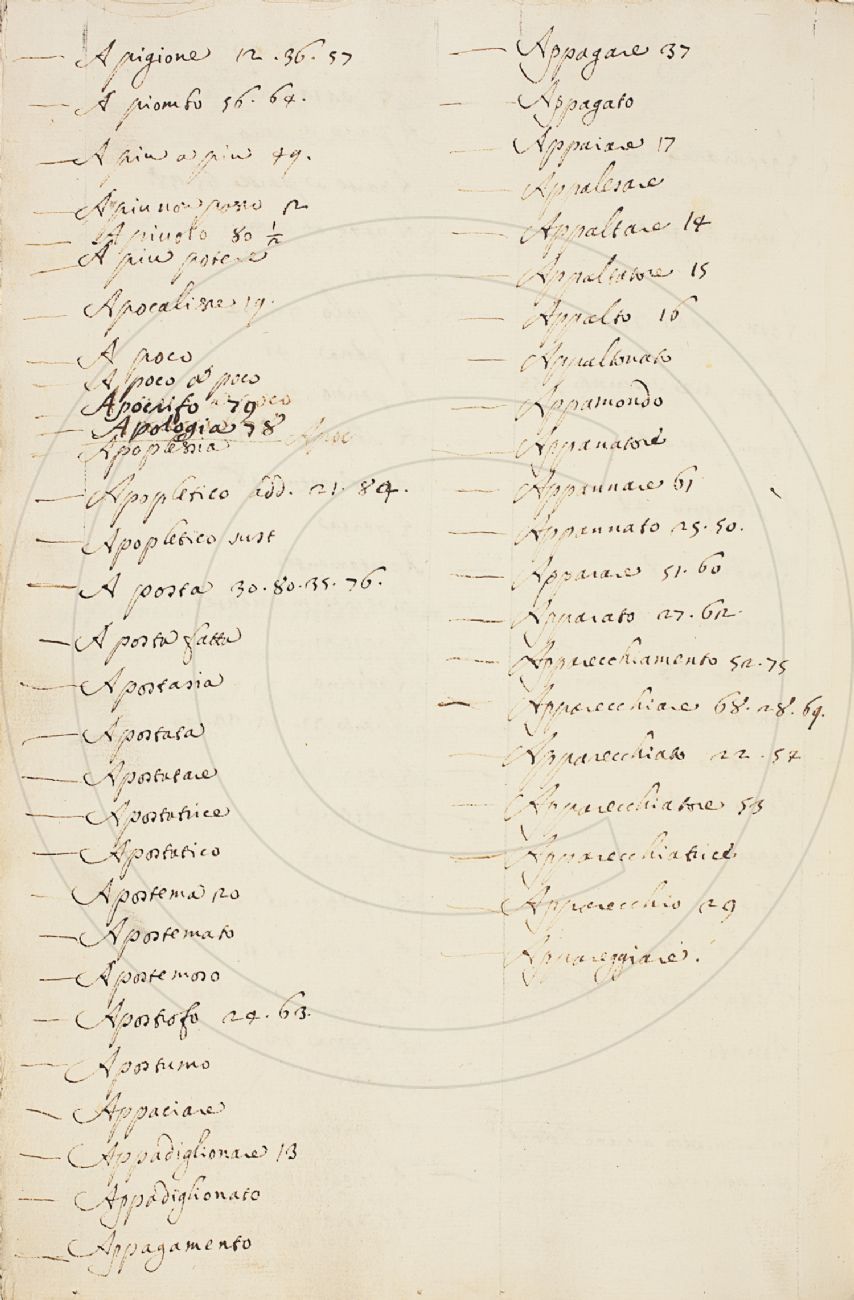 A pigione 12 . 36 . 57
A piombo 56 . 64 .
A piu a piu 49 .
A piu non posso 12
A piuolo 80 1/2
A piu potere
Apocalisse 19 .
A poco
A poco a poco
Apocrifo 79
Apologia 78
Apoplessia
Apopletico add. 21 . 84 .
Apopletico sust
A posta 30 . 80 . 35 . 76 .
A posta fatta
Apostasia
Apostata
Apostatare
Apostatrice
Apostatico
Apostema 20
Apostemato
Apostemoso
Apostrofo 24 . 63 .
Apostumo
Appaciare
Appadiglionare 13
Appadiglionato
Appagamento
Appagare 37
Appagato
Appaiare 17
Appalesare
Appaltare 14
Appaltatore 15
Appalto 16
Appaltonato
Appamondo
Appanatore
Appannare 61
Appannato 25 . 50 .
Apparare 51 . 60
Apparato 27 . 62
Apparecchiamento 52 . 75
Apparecchiare 68 . 28 . 69 .
Apparecchiato 22 . 54
Apparecchiatore 53
Apparecchiatrice
Apparecchio 29
Appareggiare .